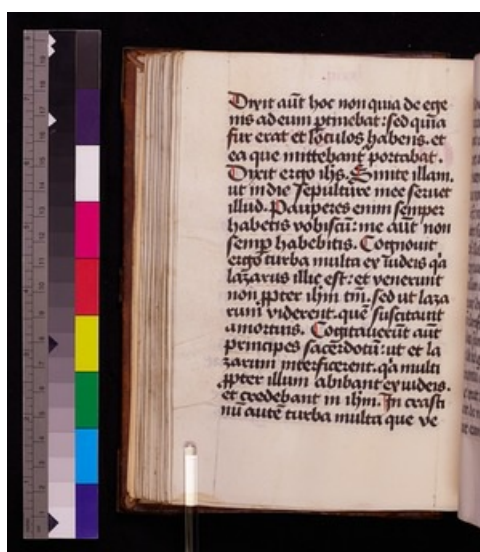 Dixit aūt hoc non quia de ege
nis ad eum ꝑtinebat: sed quia
fur erat et loculos habens. et
ea que mittebant᷑ portabat.
Dixit ergo ihs. Sinite illam.
ut in die sepulture mee seruet
illud. Pauperes enim semper
habetis vobiscū: me aūt non
semꝑ habebitis. Cognouit
ergo turba multa ex iudeis qa
lazarus illic est: et venerunt
non ꝓpter ihm tm̄. sed ut laza
rum viderent. quē suscitauit
a mortuis. Cogitauerūt aūt
principes sacerdotū: ut et la
zarum interficerent. qa multi
ꝓpter illum abibant ex iudeis.
et credebant in ihm. In crasti
nū autē turba multa que ve